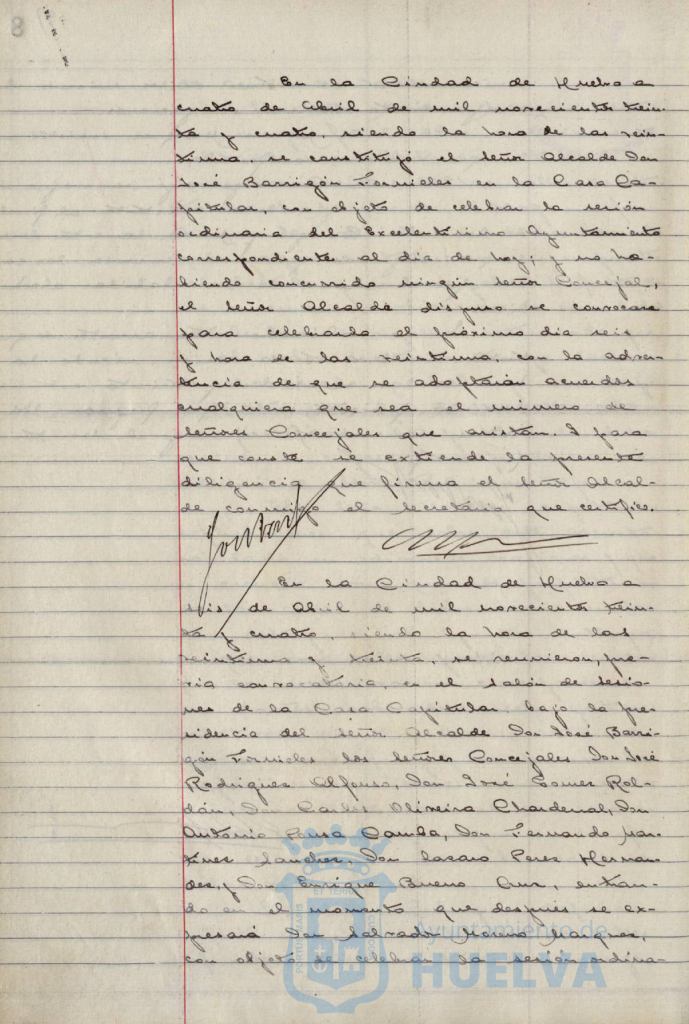 8
En la Ciudad de Huelva a
cuatro de Abril de mil novecientos trein-
ta y cuatro, siendo la hora de las vein-
tiuna, se constituyó el señor Alcalde Don
José Barrigón Fornieles en la Casa Ca-
pitular, con objeto de celebrar la sesión
ordinaria del Excelentísimo Ayuntamiento
correspondiente al dia de hoy; y no ha-
biendo concurrido ningún señor Concejal,
el señor Alcalde dispuso se convocara
para celebrarla el próximo dia seis
y hora de las veintiuna, con la adver-
tencia de que se adoptarán acuerdos
cualquiera que sea el número de
señores Concejales que asistan. Y para
que conste se extiende la presente
diligencia que firma el señor Alcal-
de conmigo el Secretario que certifico.
En la Ciudad de Huelva a
seis de Abril de mil novecientos trein-
ta y cuatro, siendo la hora de las
veintiuna y treinta, se reunieron, pre-
via convocatoria, en el salón de sesio-
nes de la Casa Capitular, bajo la pre-
sidencia del señor Alcalde Don José Barri-
gón Fornieles los señores Concejales Don José
Rodriguez Alfonso, Don José Gomez Rol-
dán, Don Carlos Oliveira Chardenal, Don
Antonio Pousa Camba, Don Fernando Mar-
tinez Sanchez, Don Lazaro Perez Hernan-
dez, y Don Enrique Bueno Cruz, entran-
do en el momento que después se ex-
presará Don Salvador Moreno Marquez,
con objeto de celebrar la sesión ordina-
Ayuntamiento de
HUELVA